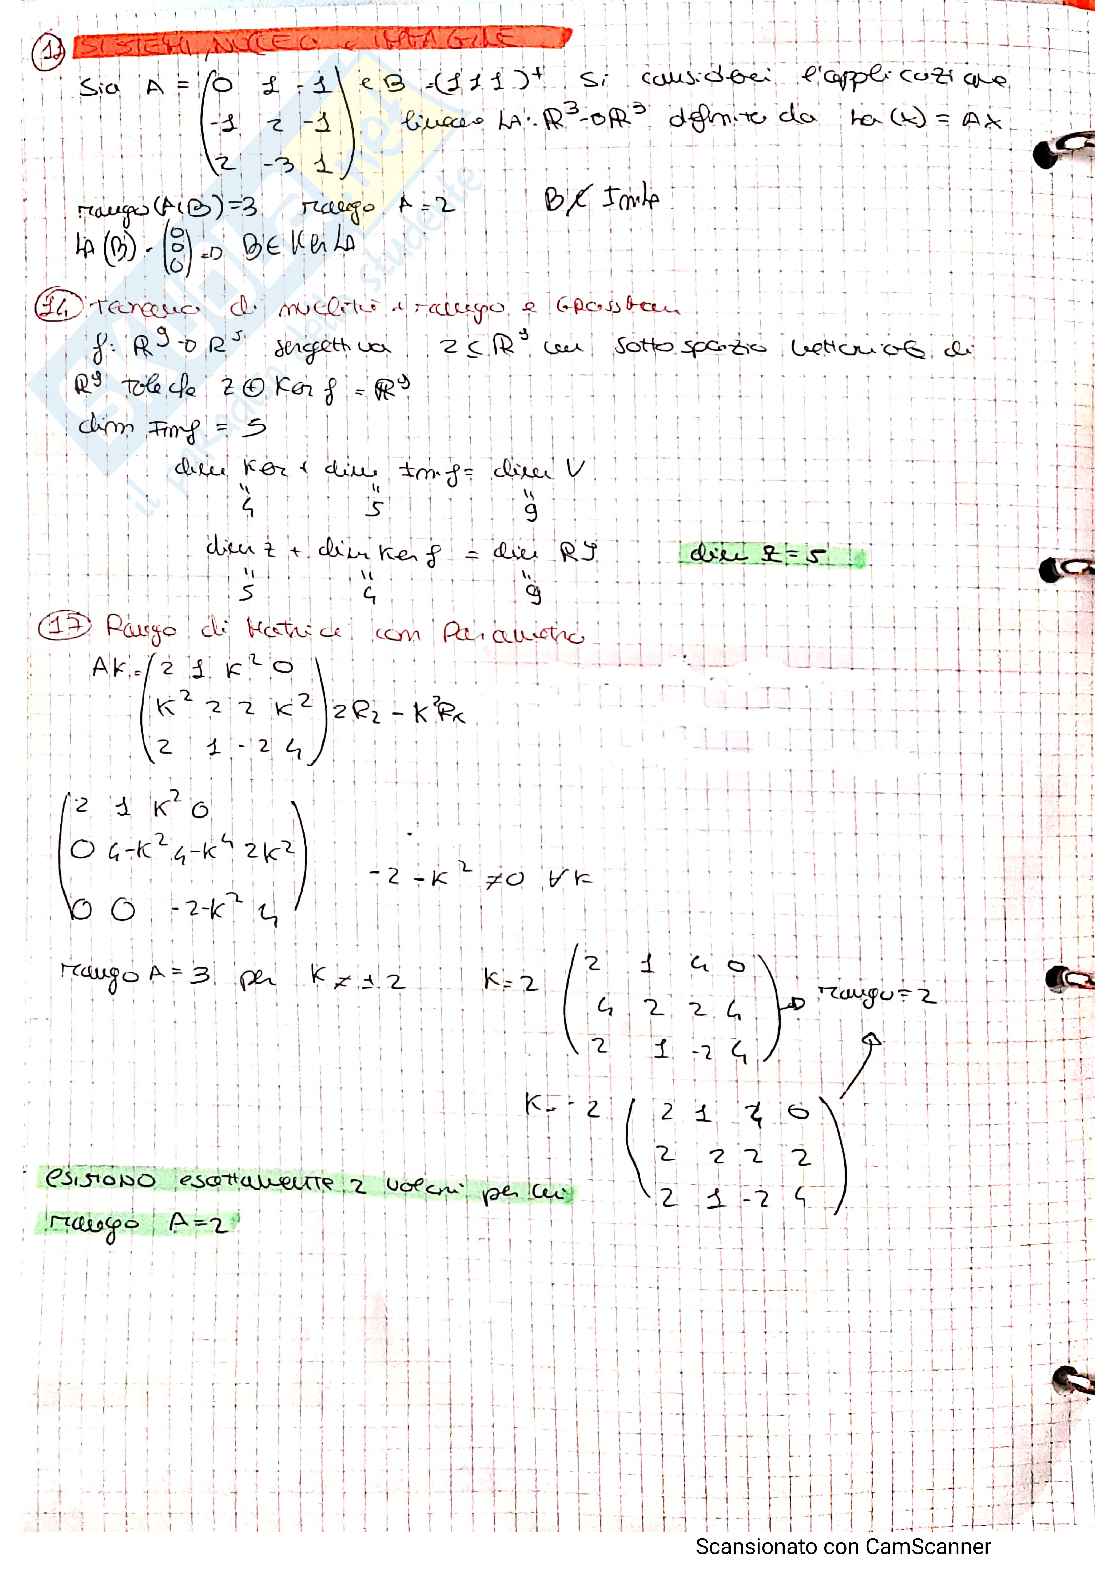 12 SISTEMI, NUCLEO e IMMAGINE
Sia A = (0 1 -1) e B = (1 1 1)^t Si consideri l'applicazione
(-1 2 -1) lineare LA: R^3 → R^3 definita da LA(x) = AX
(2 -3 1)
rango(A|B)=3 rango A=2 B∉ ImLA
LA(B) = (0 0 0) => B∈ Ker LA
14 Teorema di nullità + rango e Grassman
f: R^9 → R^5 surgettiva Z ⊆ R^9 un sottospazio vettoriale di
R^9 tale che Z ⊕ Ker f = R^9
dim Imf = 5
dim Ker + dim Imf = dim V
" " "
4 5 9
dim Z + dim Ker f = dim R9
" " "
5 4 9
dim Z = 5
17 Rango di Matrice con Parametro
AK = (2 1 K^2 0)
(K^2 2 2 K^2) 2R2 - K^2R1
(2 1 -2 4)
(2 1 K^2 0)
(0 4-K^2 4-K^4 2K^2)
-2-K^2 ≠0 ∀K
(0 0 -2-K^2 4)
rango A = 3 per K ≠ ±2
K=2 (2 1 4 0)
(4 2 2 4) → rango = 2
(2 1 -2 4)
K=-2 (2 1 4 0)
(2 2 2 2)
(2 1 -2 4)
esistono esattamente 2 valori per cui
rango A=2
Scansionato con CamScanner